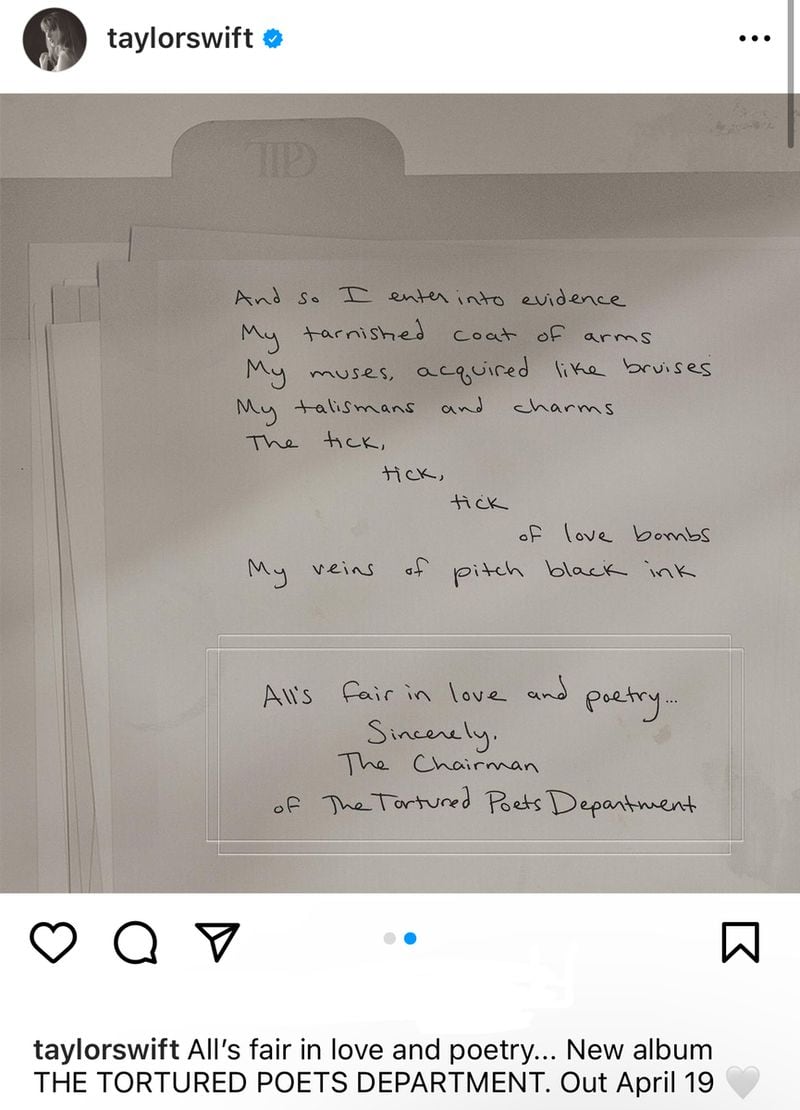 taylorswift
TTPD
And so I enter into evidence
My tarnished coat of arms
My muses, acquired like bruises
My talismans and charms
The tick,
tick,
tick
of love bombs
My veins of pitch black ink
All's fair in love and poetry...
Sincerely,
The Chairman
of The Tortured Poets Department
taylorswift All's fair in love and poetry... New album
THE TORTURED POETS DEPARTMENT. Out April 19 🤍